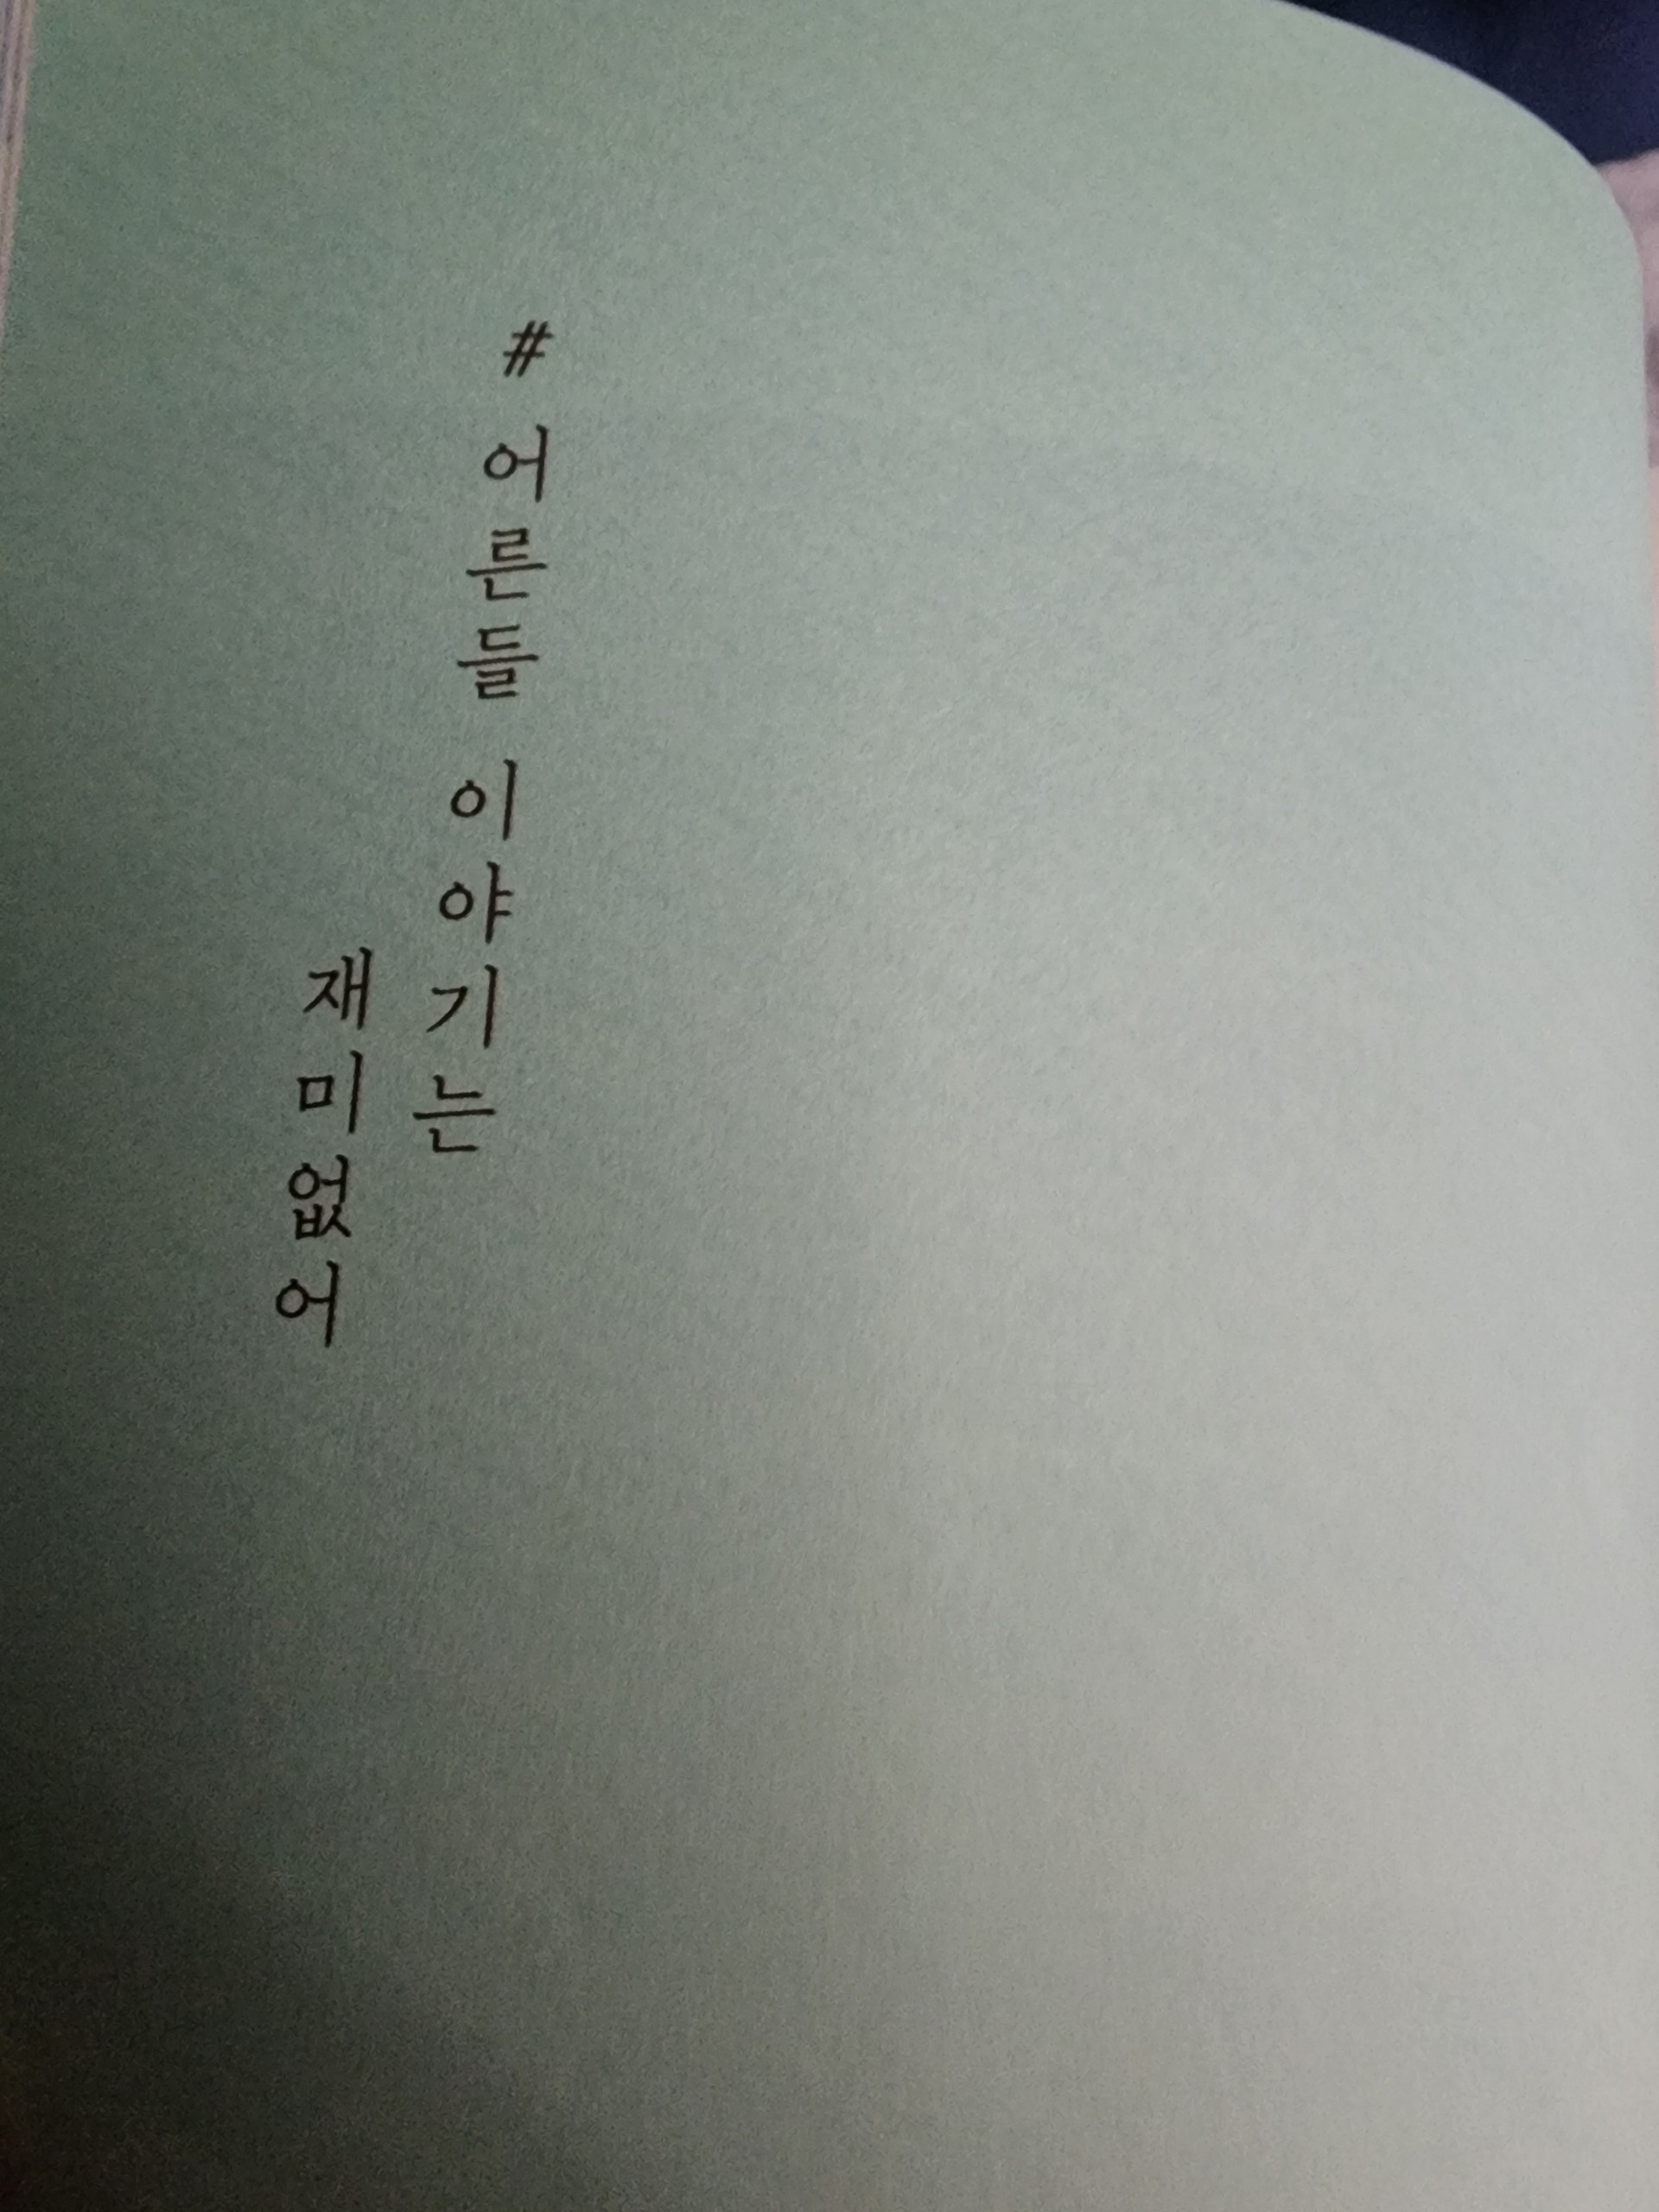 # 어른들 이야기는
재미없어